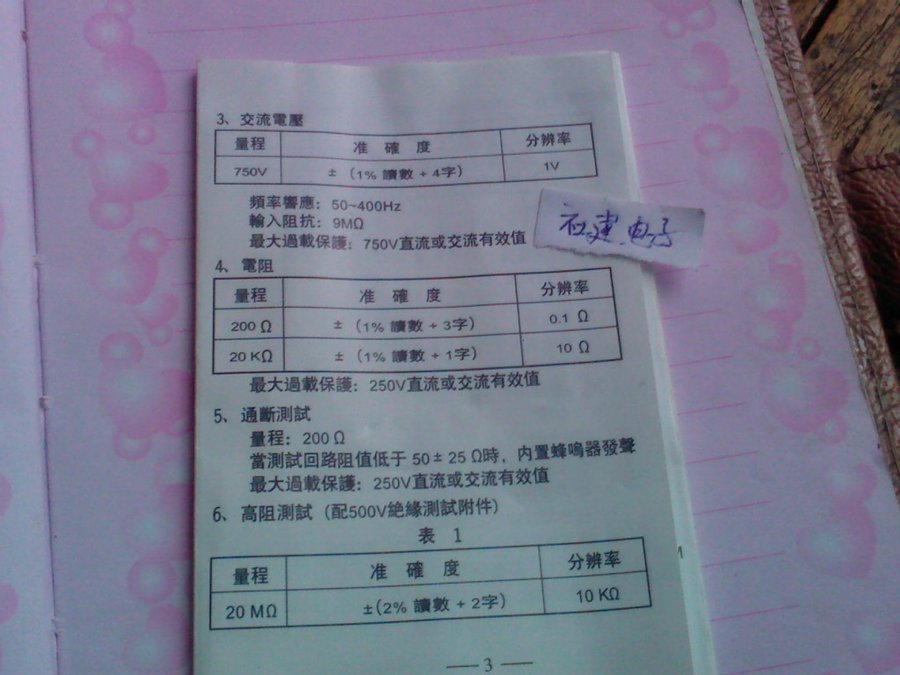 3、交流電壓
量程 准 確 度 分辨率
750V ± (1% 讀數 + 4字) 1V
頻率響應：50~400Hz
輸入阻抗：9MΩ
最大過載保護：750V直流或交流有效值
福建电子
4、電阻
量程 准 確 度 分辨率
200 Ω ± (1% 讀數 + 3字) 0.1 Ω
20 KΩ ± (1% 讀數 + 1字) 10 Ω
最大過載保護：250V直流或交流有效值
5、通斷測試
量程：200 Ω
當測試回路阻值低于 50 ± 25 Ω時，内置蜂鳴器發聲
最大過載保護：250V直流或交流有效值
6、高阻測試（配500V絶緣測試附件）
表 1
量程 准 確 度 分辨率
20 MΩ ±(2% 讀數 + 2字) 10 KΩ
— 3 —